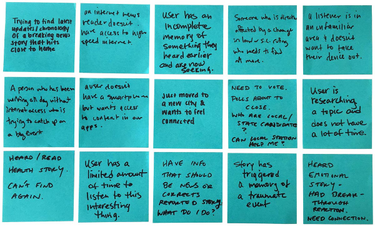 Trying to find latest
updates/chronology
of a breaking news
story that hits
close to home
An internet news
reader doesn't
have access to high
speed internet.
User has an
incomplete
memory of
something they
heard earlier
and are now
seeking.
Someone who is directly
affected by a change
in law or S.C. ruling
who needs to find
out more.
A listener is in
an unfamiliar
area & doesn't
want to take
their device out.
A person who has been
working all day without
internet access who is
trying to catch up on
a big event
A user doesn't
have a smartphone
but wants access
to content in our
apps.
Just moved to
a new city &
wants to feel
connected
NEED TO VOTE.
POLLS ABOUT TO
CLOSE.
WHO ARE LOCAL/
STATE CANDIDATES?
CAN LOCAL STATION
HELP ME?
User is
researching
a topic and
does not have
a lot of time.
HEARD/READ
HEALTH STORY.
CAN'T FIND
AGAIN.
User has a
limited amount
of time to
listen to this
interesting
thing.
HAVE INFO
THAT SHOULD
BE NEWS OR
CORRECTS
REPORTED STORY.
WHAT DO I DO?
Story has
triggered
a memory of
a traumatic
event
HEARD
EMOTIONAL
STORY -
HAD
THROUGH
REACTION.
NEED CONNECTION.